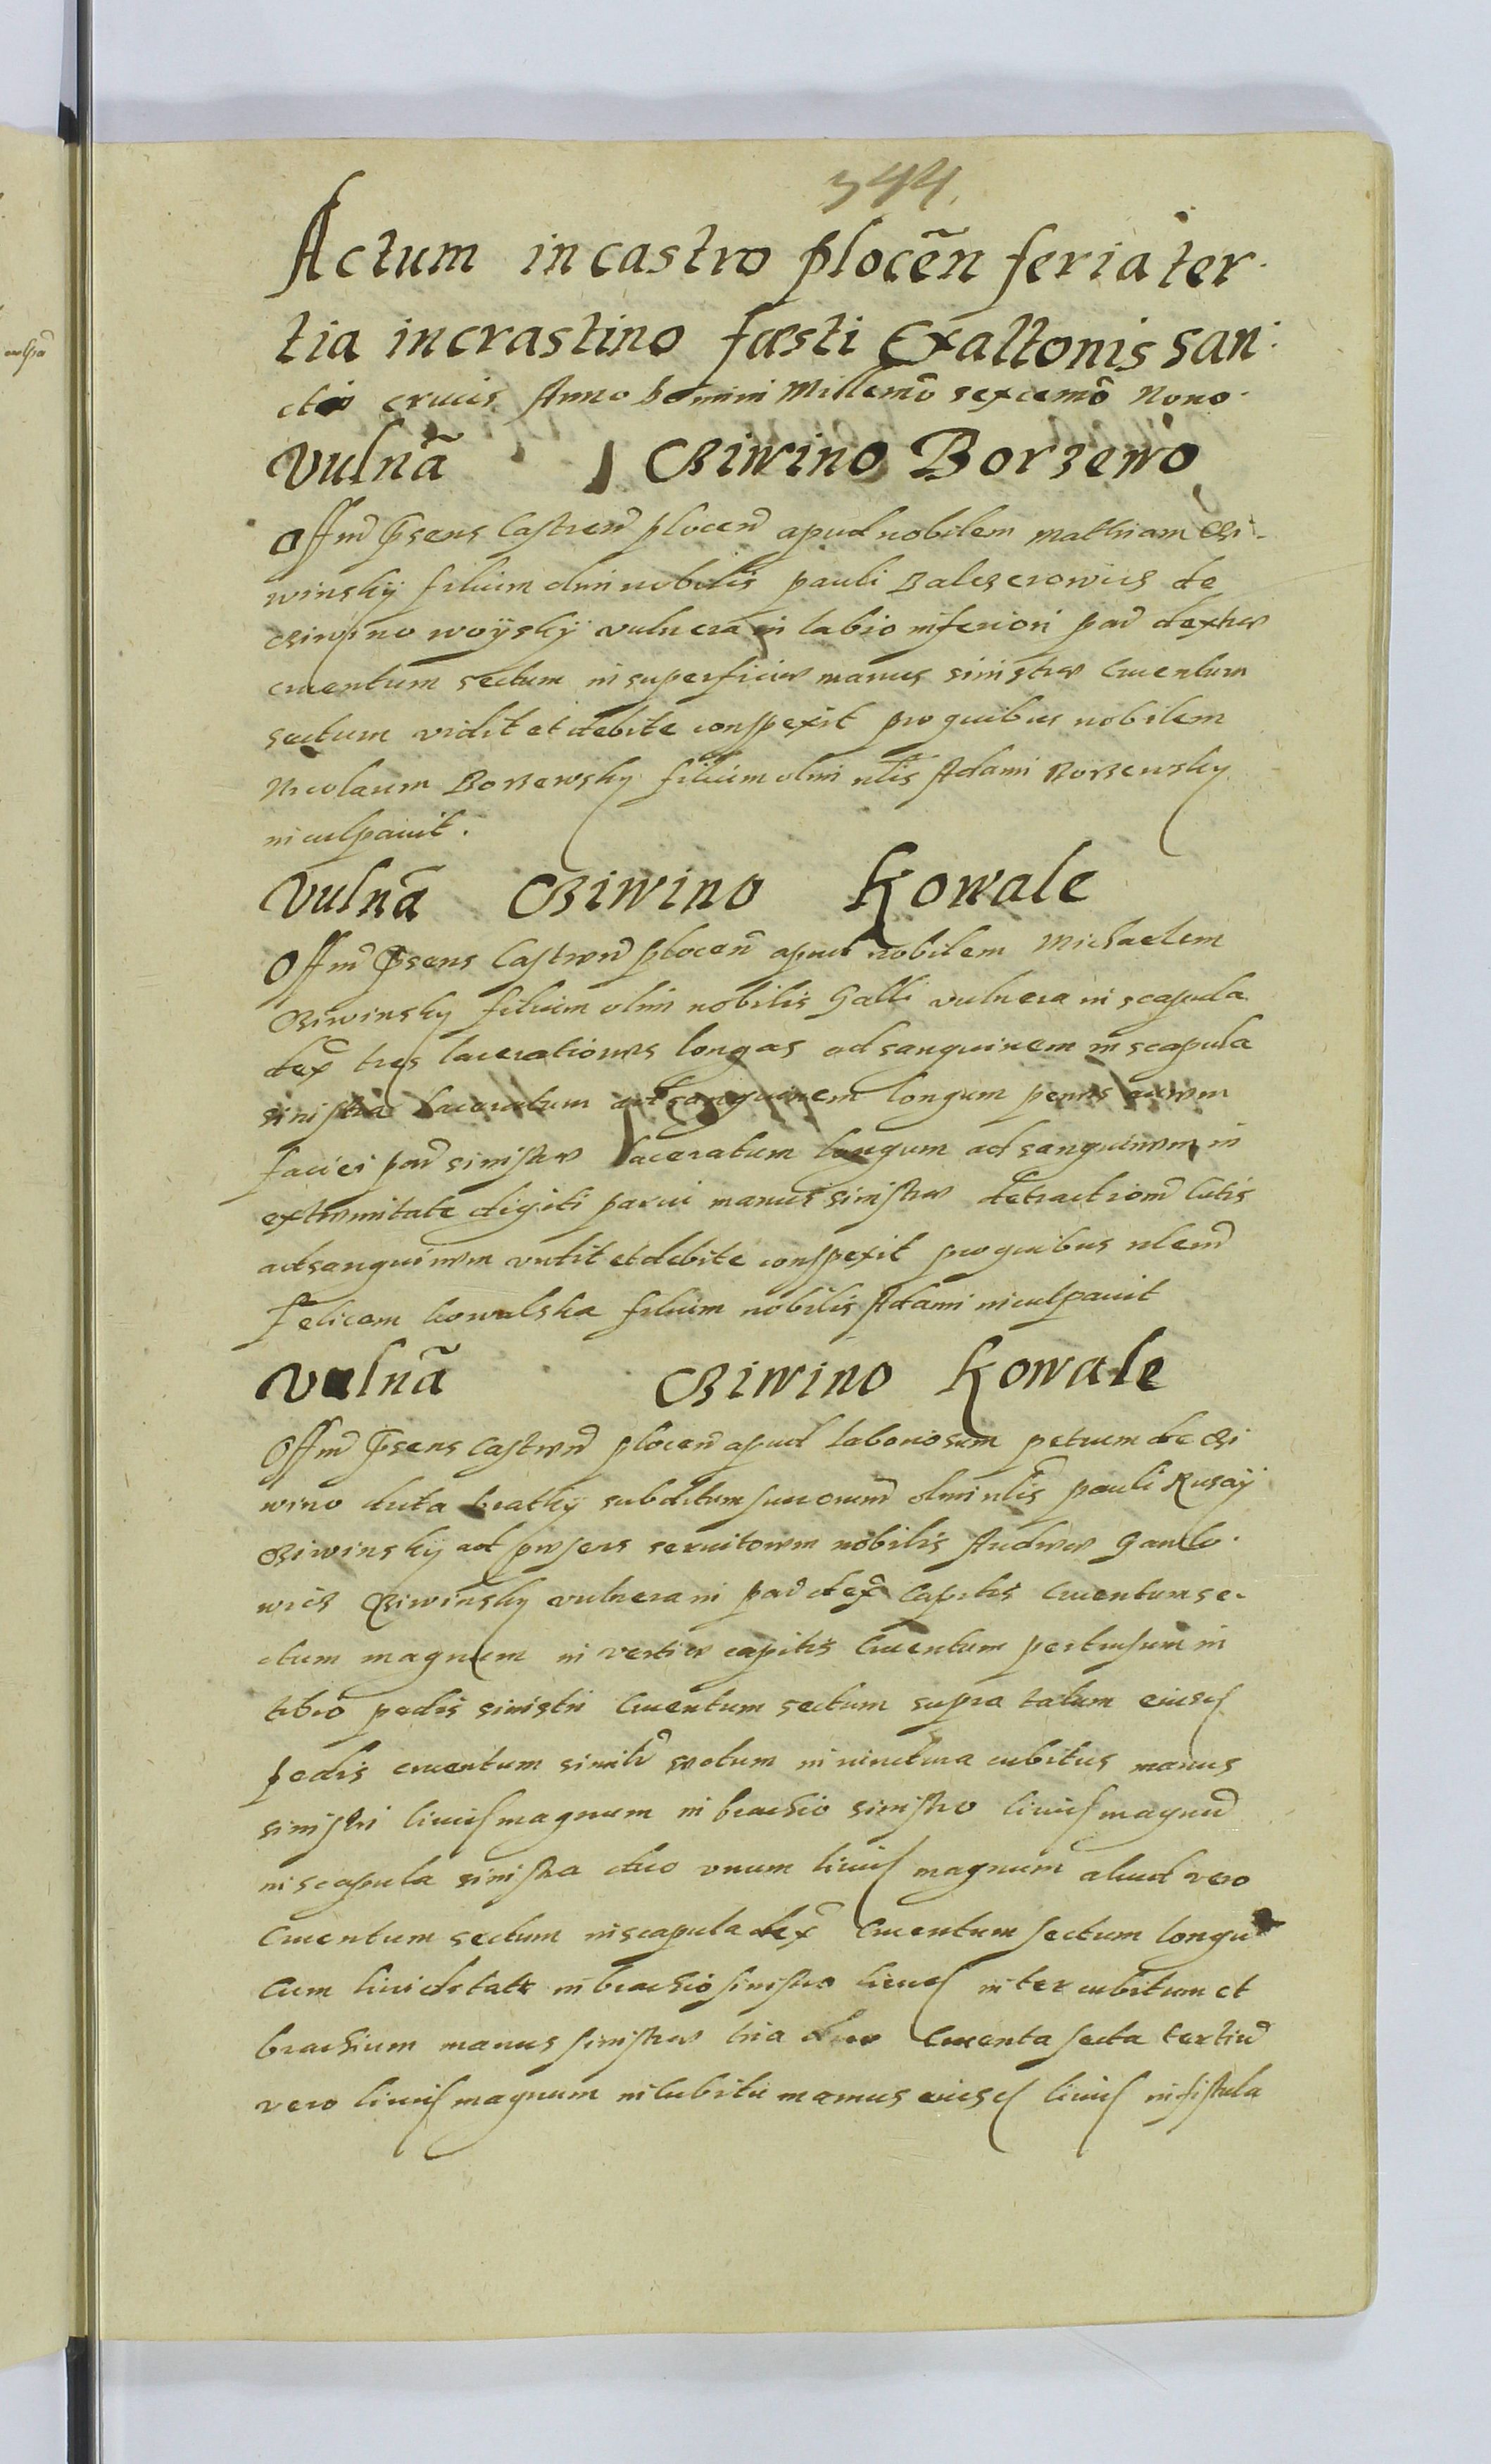 344.
Actum in castro plocen̄ feria ter
tia in crastino fæsti Exaltonis san:
ctæ crucis Anno Domini Millemō sexcemō Nono.
Vulnā Cziwino Borzewo
Offm̄ p̄sens Castren̄ plocen̄ apud nobilem Mathiam Czi-
winsky filium olim nobilis pauli Balcerowicz de
Cziwino woÿskÿ vulnera in labio inferiori par̄ dextræ
cruentum sectum in superficie manus sinistræ cruentum
sectum vidit et debite conspexit pro quibus nobilem
Nicolaum Borzewsky filium olim nlis Adami Borzewsky
inculpavit.
Vulnā Cziwino Kowale
Offm̄ p̄sens Castren̄ plocen̄ apud nobilem Michaelem
Cziwinsky filium olim nobilis Galli vulnera in scapula
dex̄ tres lacerationes longas ad sanguinem in scapula
sinistra laceratum ad sanguinem longum penes aurem
faciei par̄ sinistræ laceratum longum ad sanguinem in
extremitate digiti parvi manus sinistræ detractionem cutis
ad sanguinem vidit et debite conspexit pro quibus nlem̄
Felicem kowalska filium nobilis Adami inculpavit
Vulnā Cziwino Kowale
Offm̄ p̄sens Castren̄ plocen̄ apud laboriosum petrum de Czi
wino subditum olim nlis pauli Rusaÿ
Cziwinskÿ ad præsens servitorem nobilis Andreæ Gawlo-
wicz Cziwinsky vulnera in par̄ dex̄ capitis cruentum se-
ctum magnum in vertice capitis cruentum pertusum in
tibio pedis sinistri cruentum sectum supra talum eiusd
pedis cruentum similr̄ sectum in iunctura cubitus manus
sinistri livid magnum in brachio sinistro livid magnū
in scapula sinistra duo unum livid magnum aliud vero
cruentum sectum in scapula dex̄ cruentum sectum longū
cum lividitate in brachio sinistro livid inter cubitum et
brachium manus sinistræ tria duo cruenta secta tertiū
vero livid magnum in cubitu manus eiusd livid in fistula